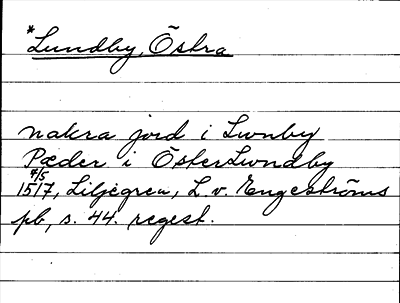 *Lundby, Östra
nakra jord i Lwnby
Pæder i ÖsterLwndby
4/5
1517, Liljegren, L. v. Engeströms
pb, s. 44. regest.